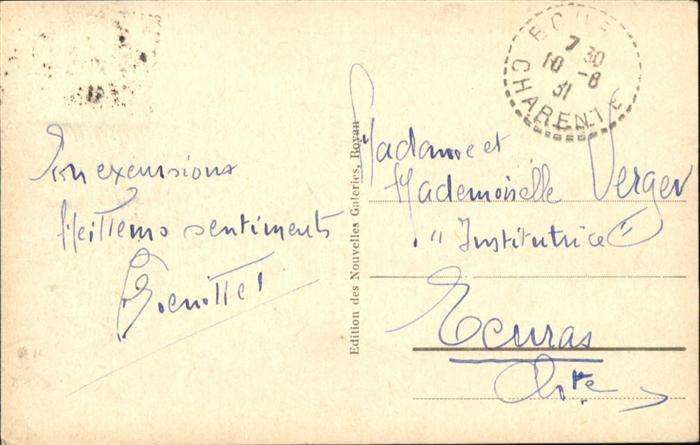 En excursions
Meillems sentiments
Edition des Nouvelles Galeries, Royan
ECURAS
7 30
10 -8
31
CHARENTE
Madame et
Mademoiselle Verger
" Institutrice "
Ecuras
Chte